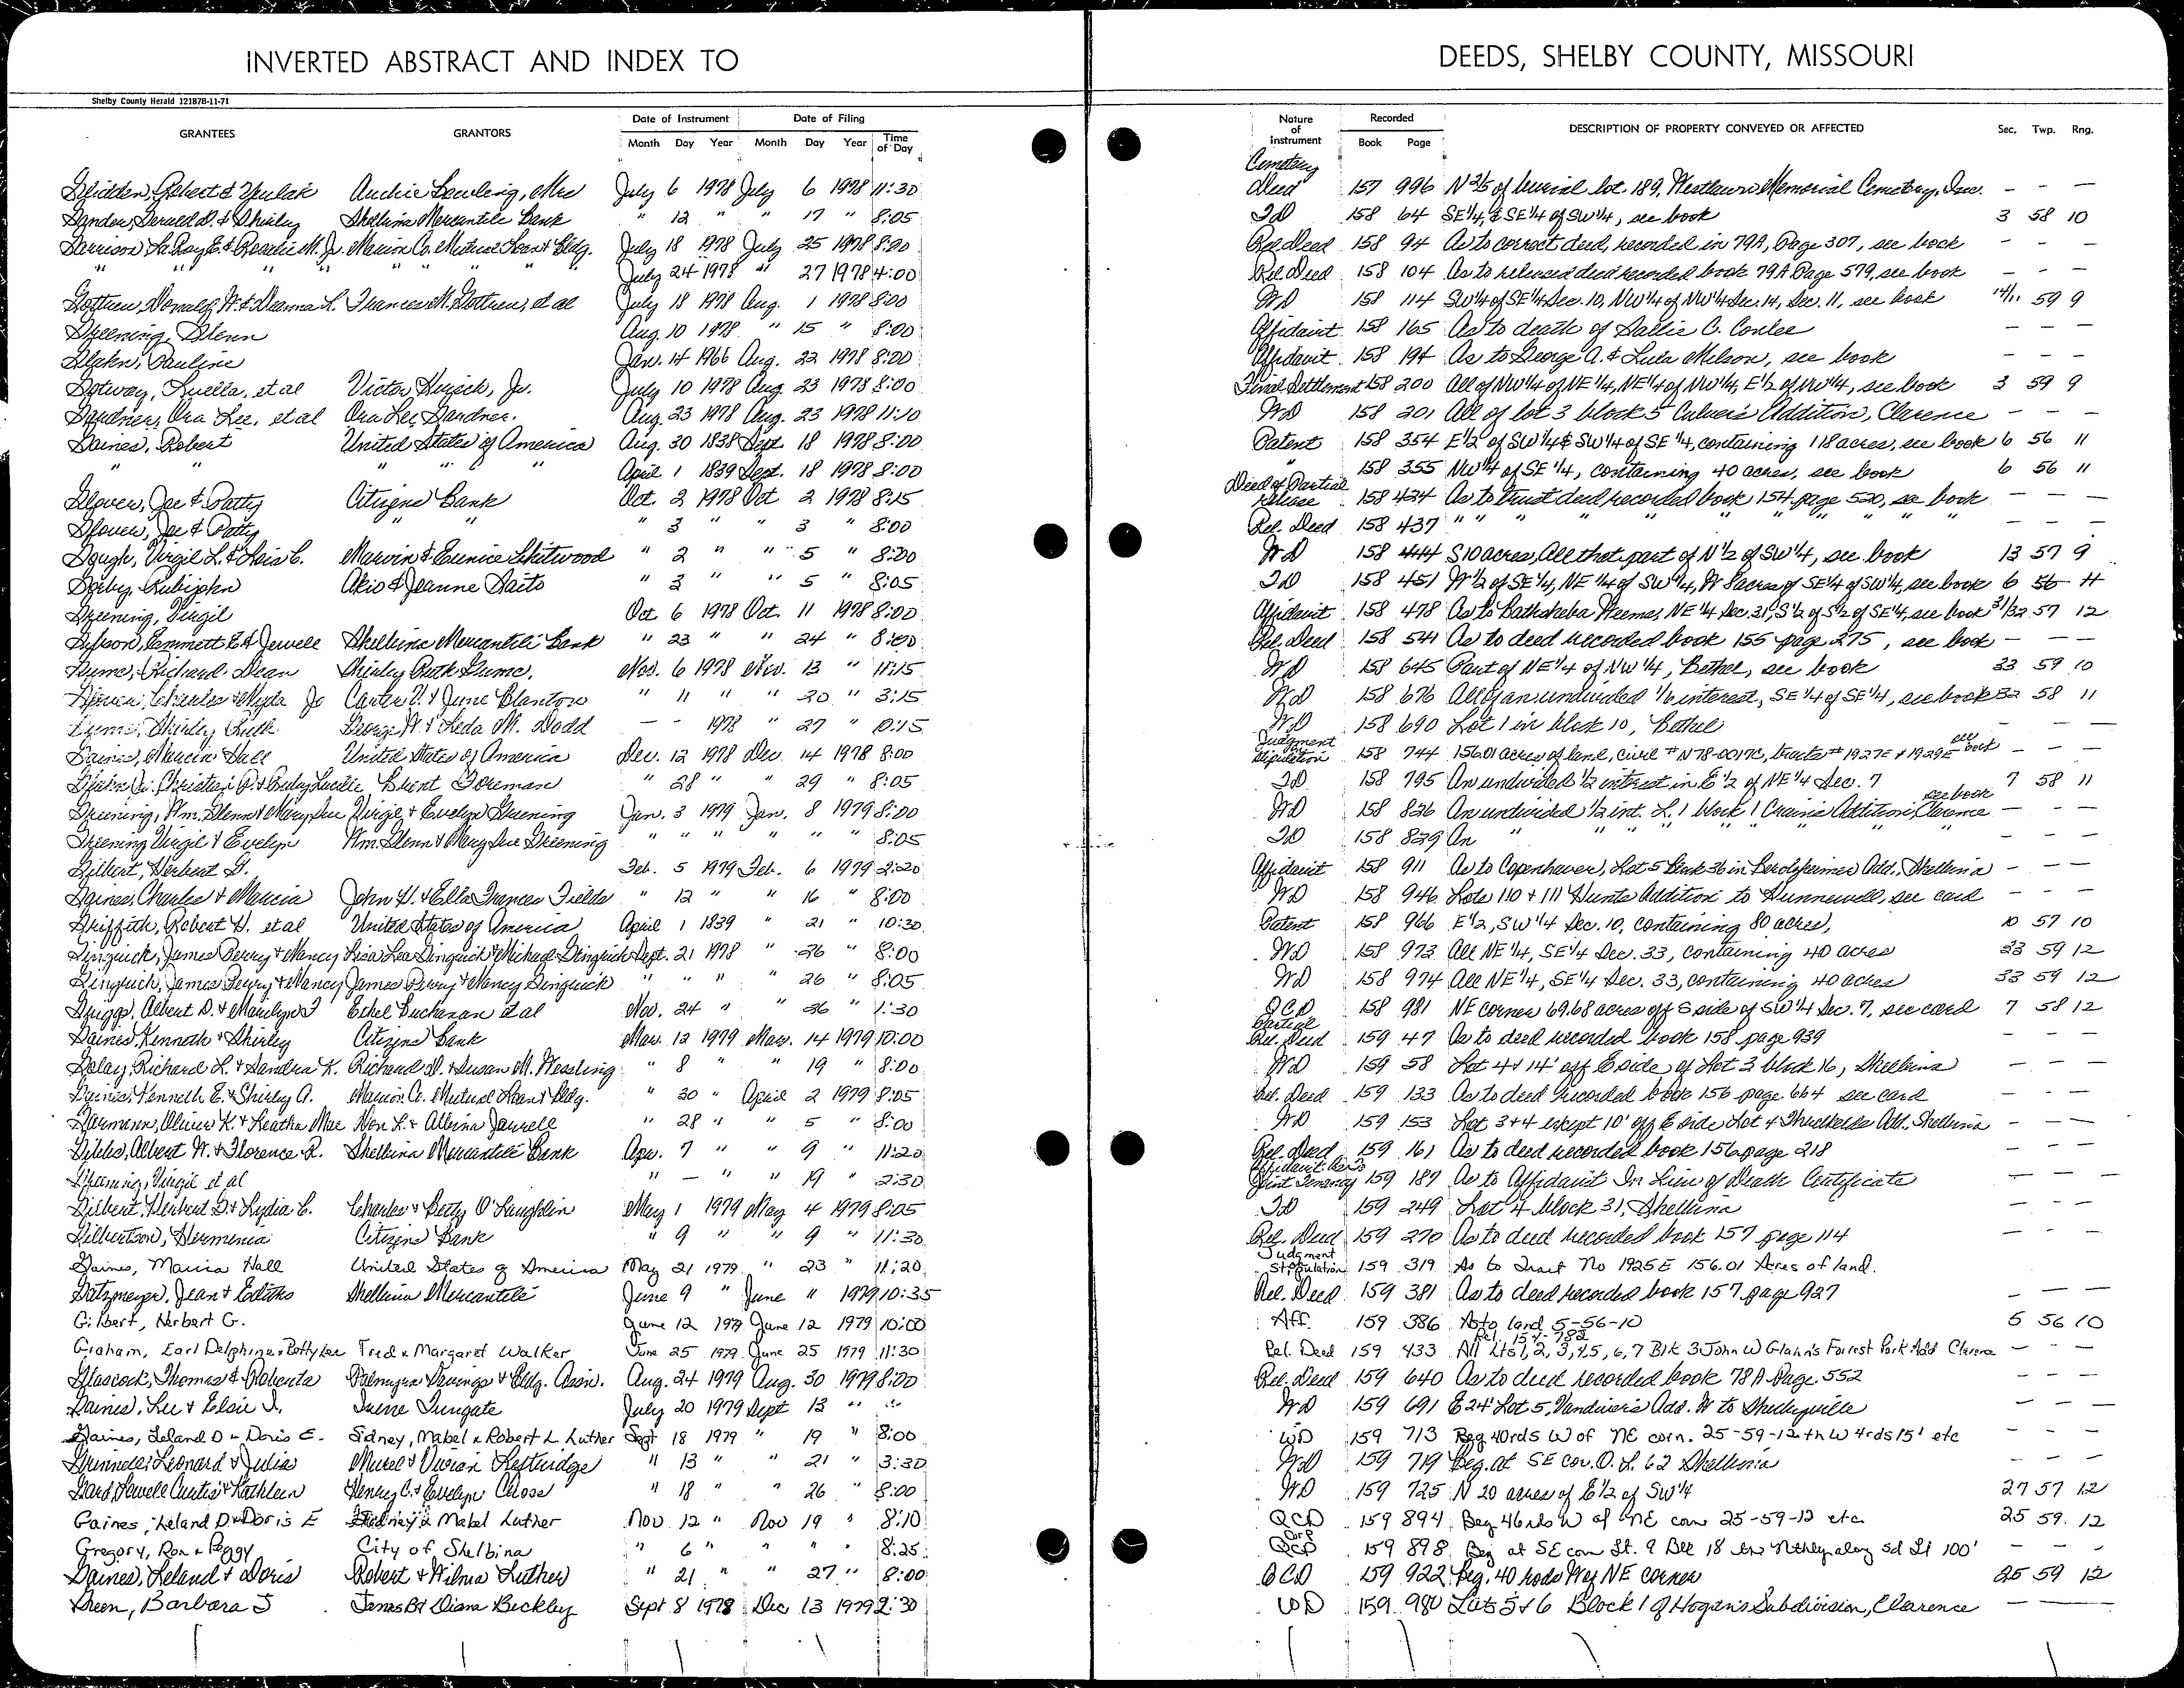 INVERTED ABSTRACT AND INDEX TO DEEDS, SHELBY COUNTY, MISSOURI
Shelby County Herald 12187B-11-71
GRANTEES GRANTORS Date of Instrument Date of Filing Nature of Instrument Recorded DESCRIPTION OF PROPERTY CONVEYED OR AFFECTED Sec. Twp. Rng.
Month Day Year Month Day Year Time of Day Book Page
Glidden, Robert & Archie Mrs July 6 1978 July 6 1978 11:30 Cemetery Deed 157 996 N 2/5 of burial lot 189, Westlawn Memorial Cemetery, Inc. - - -
& Shirley Shelbina Mercantile Bank " 12 " " 17 " 8:05 TD 158 64 SE 1/4, & SE 1/4 of SW 1/4, see book 3 58 10
Garrison, LaRoy E. & Rosalie M. Jr. Marion Co. Mutual Loan & Bldg. July 18 1978 July 25 1978 8:00 Rel. Deed 158 94 As to correct deed, recorded in 79A, Page 307, see book - - -
" " " " " " " July 24 1978 " 27 1978 4:00 Rel. Deed 158 104 As to released deed recorded book 79A Page 579, see book - - -
Donald W. & Deanna L. Frances M. et al July 18 1978 Aug. 1 1978 8:00 WD 158 114 SW 1/4 of SE 1/4 Sec. 10, NW 1/4 of NW 1/4 Sec. 14, Sec. 11, see book 14/11 59 9
Greening, Glenn Aug. 10 1978 " 15 " 8:00 Affidavit 158 165 As to death of Sallie C. Conlee - - -
Glahn, Pauline Jan. 14 1966 Aug. 22 1978 8:00 Affidavit 158 194 As to George A. & Lula Melson, see book - - -
Gotway, Luella, et al Victor Jr. July 10 1978 Aug 23 1978 8:00 Final Settlement 158 200 All of NW 1/4 of NE 1/4, NE 1/4 of NW 1/4, E 1/2 of NW 1/4, see book 3 59 9
Gardner, Ora Lee, et al Ora Lee Gardner. Aug. 23 1978 Aug. 23 1978 11:10 WD 158 201 All of lot 3 block 5 Culver's Addition, Clarence - - -
Gaines, Robert United States of America Aug. 30 1838 Sept. 18 1978 8:00 Patent 158 354 E 1/2 of SW 1/4 & SW 1/4 of SE 1/4, containing 118 acres, see book 6 56 11
" " " " " April 1 1839 Sept. 18 1978 8:00 " 158 355 NW 1/4 of SE 1/4, containing 40 acres, see book 6 56 11
Glover, Joe & Patty Citizens Bank Oct. 2 1978 Oct 2 1978 8:15 Deed of Partial Release 158 424 As to trust deed recorded book 154 page 520, see book - - -
Glover, Joe & Patty " " " 3 " " 3 " 8:00 Rel. Deed 158 437 " " " " " " " " - - -
Gough, Virgil L. & Lois C. Marvin & Eunice Chitwood " 2 " " 5 " 8:00 WD 158 444 S 10 acres, All that part of N 1/2 of SW 1/4, see book 13 57 9
Akio & Jeanne Saito " 3 " " 5 " 8:05 TD 158 451 W 1/2 of SE 1/4, NE 1/4 of SW 1/4, W 8 acres of SE 1/4 of SW 1/4, see book 6 56 11
Greening, Virgil Oct 6 1978 Oct. 11 1978 8:00 Affidavit 158 478 As to Bathsheba Weems, NE 1/4 Sec. 31, S 1/2 of S 1/2 of SE 1/4, see book 31/32 57 12
Gibson, Emmett E. & Jewell Shelbina Mercantile Bank " 23 " " 24 " 8:00 Rel. Deed 158 541 As to deed recorded book 155 page 275, see book - - -
Richard Dean Shirley Ruth Nov. 6 1978 Nov. 13 " 11:15 WD 158 645 Part of NE 1/4 of NW 1/4, Bethel, see book 33 59 10
Charles & Jo Carter V. & June Blanton " 11 " " 20 " 3:15 WD 158 676 All of an undivided 1/6 interest, SE 1/4 of SE 1/4, see book 32 58 11
Shirley Ruth George W. & Leda M. Dodd - - 1978 " 27 " 10:15 WD 158 690 Lot 1 in block 10, Bethel - -
Gaines, Marcia Hall United States of America Dec. 12 1978 Dec 14 1978 8:00 Judgment Stipulation 158 744 156.01 acres of land, Civil # N78-0017C, tracts # 1927E & 1929E see book - - -
Glahn Christian & Lucille Brent Foreman " 28 " " 29 " 8:05 TD 158 795 An undivided 1/2 interest in E 1/2 of NE 1/4 Sec. 7 7 58 11
Greening, Wm. Glenn & Mary Sue Virgil & Evelyn Greening Jan. 3 1979 Jan. 8 1979 8:00 WD 158 826 An undivided 1/2 int. L. 1 block 1 Crain's Addition, Clarence see book - - -
Greening Virgil & Evelyn Wm. Glenn & Mary Sue Greening " " " " " " 8:05 TD 158 829 An " " " " " " "
Gilbert, Herbert G. Feb. 5 1979 Feb. 6 1979 2:20 Affidavit 158 911 As to Copenhaver, Lot 5 Block 36 in Add., Shelbina - - -
Gaines, Charles & Marcia John H. & Ella Frances Fields " 12 " " 16 " 8:00 WD 158 946 Lots 110 & 111 Hunts Addition to Hunnewell, see card - - -
Griffith, Robert H. et al United States of America April 1 1839 " 21 " 10:30 Patent 158 966 E 1/2, SW 1/4 Sec. 10, containing 80 acres, 10 57 10
Gingrich, James Perry & Nancy Lisa Lea Gingrich & Michael Gingrich Sept. 21 1978 " 26 " 8:00 WD 158 973 All NE 1/4, SE 1/4 Sec. 33, containing 40 acres 33 59 12
Gingrich, James Perry & Nancy James Perry & Nancy Gingrich " " " " 26 " 8:05 WD 158 974 All NE 1/4, SE 1/4 Sec. 33, containing 40 acres 33 59 12
Griggs, Albert D. & Marilyn J Ethel Buchanan et al Nov. 24 " " 26 " 1:30 QCD 158 981 NE corner 69.68 acres off S side of SW 1/4 Sec. 7, see card 7 58 12
Gaines, Kenneth & Shirley Citizens Bank Mar. 12 1979 Mar. 14 1979 10:00 Partial Rel. Deed 159 47 As to deed recorded book 158 page 939 - - -
Richard L. & Sandra K. Richard D. & Susan M. Wessling " 8 " " 19 " 8:00 WD 159 58 Lot 4 & 14' off E side of Lot 3 block 16, Shelbina - - -
Gaines, Kenneth E. & Shirley A. Marion Co. Mutual Loan & Bldg. " 30 " April 2 1979 8:05 Rel. Deed 159 133 As to deed recorded book 156 page 664 see card - - -
Garmann, Oliver K. & Leatha Mae Von L. & Albina Jarrell " 28 " " 5 " 8:00 WD 159 153 Lot 3 & 4 except 10' off E side Lot 4 Threlkelds Add., Shelbina - - -
Albert W. & Florence R. Shelbina Mercantile Bank Apr. 7 " " 9 " 11:20 Rel. Deed 159 161 As to deed recorded book 156 page 218 - - -
Greening, Virgil et al " - " " 19 " 2:30 Affidavit As to Joint Tenancy 159 187 As to Affidavit In Lieu of Death Certificate - - -
Gilbert, Herbert G. & Lydia C. Charles & Betty O'Laughlin May 1 1979 May 4 1979 8:05 TD 159 249 Lot 4 block 31, Shelbina - - -
Gilbertson, Herminia Citizens Bank " 9 " " 9 " 11:30 Rel. Deed 159 270 As to deed recorded book 157 page 114 - - -
Gaines, Marcia Hall United States of America May 21 1979 " 23 " 11:20 Judgment Stipulation 159 319 As to Tract No 1925E 156.01 Acres of land.
Jean & Shelbina Mercantile June 9 " June " 1979 10:35 Rel. Deed 159 381 As to deed recorded book 157 page 927 - - -
Gilbert, Herbert G. June 12 1979 June 12 1979 10:00 Aff. 159 386 As to land 5-56-10 5 56 10
Graham, Earl Delphine & Betty Lee Fred & Margaret Walker June 25 1979 June 25 1979 11:30 Rel. Deed 159 433 All Lts 1, 2, 3, 4, 5, 6, 7 Blk 3 John W Glahn's Forrest Park Add Clarence - - -
Glascock, Thomas & Roberta Palmyra Savings & Bldg. Assn. Aug. 24 1979 Aug. 30 1979 8:00 Rel. Deed 159 640 As to deed recorded book 78A Page 552 - - -
Gaines, Lee & Elsie J. Irene Tungate July 20 1979 Sept 13 " " WD 159 691 E 24' Lot 5, Vandiver's Add. W to Shelbyville - - -
Gaines, Leland D & Doris E. Sidney, Mabel & Robert L. Luther Sept 18 1979 " 19 " 8:00 WD 159 713 Beg 40rds W of NE corn. 25-59-12 th W 4rds 15' etc - - -
Leonard & Julia & Vivian " 13 " " 21 " 3:30 WD 159 719 Beg. at SE cor. O. L. 62 Shelbina - - -
Gard Lowell Curtis & Kathleen Henry C. & Evelyn Close " 18 " " 26 " 8:00 WD 159 725 N 20 acres of E 1/2 of SW 1/4 27 57 12
Gaines, Leland D. & Doris E Sidney & Mabel Luther Nov 12 " Nov 19 " 8:10 QCD 159 894 Beg 46rds W of NE corn 25-59-12 etc. 25 59 12
Gregory, Ron & Peggy City of Shelbina " 6 " " " " 8:25 Corp QCD 159 898 Beg at SE corn Lt. 9 Blk 18 thn Nthly along sd Lt 100' - - -
Gaines, Leland & Doris Robert & Wilma Luther " 21 " " 27 " 8:00 QCD 159 922 Beg. 40 rods W of NE corner 25 59 12
Green, Barbara J James B & Diana Beckley Sept 8 1978 Dec 13 1979 2:30 WD 159 980 Lots 5 & 6 Block 1 of Hogan's Subdivision, Clarence - -